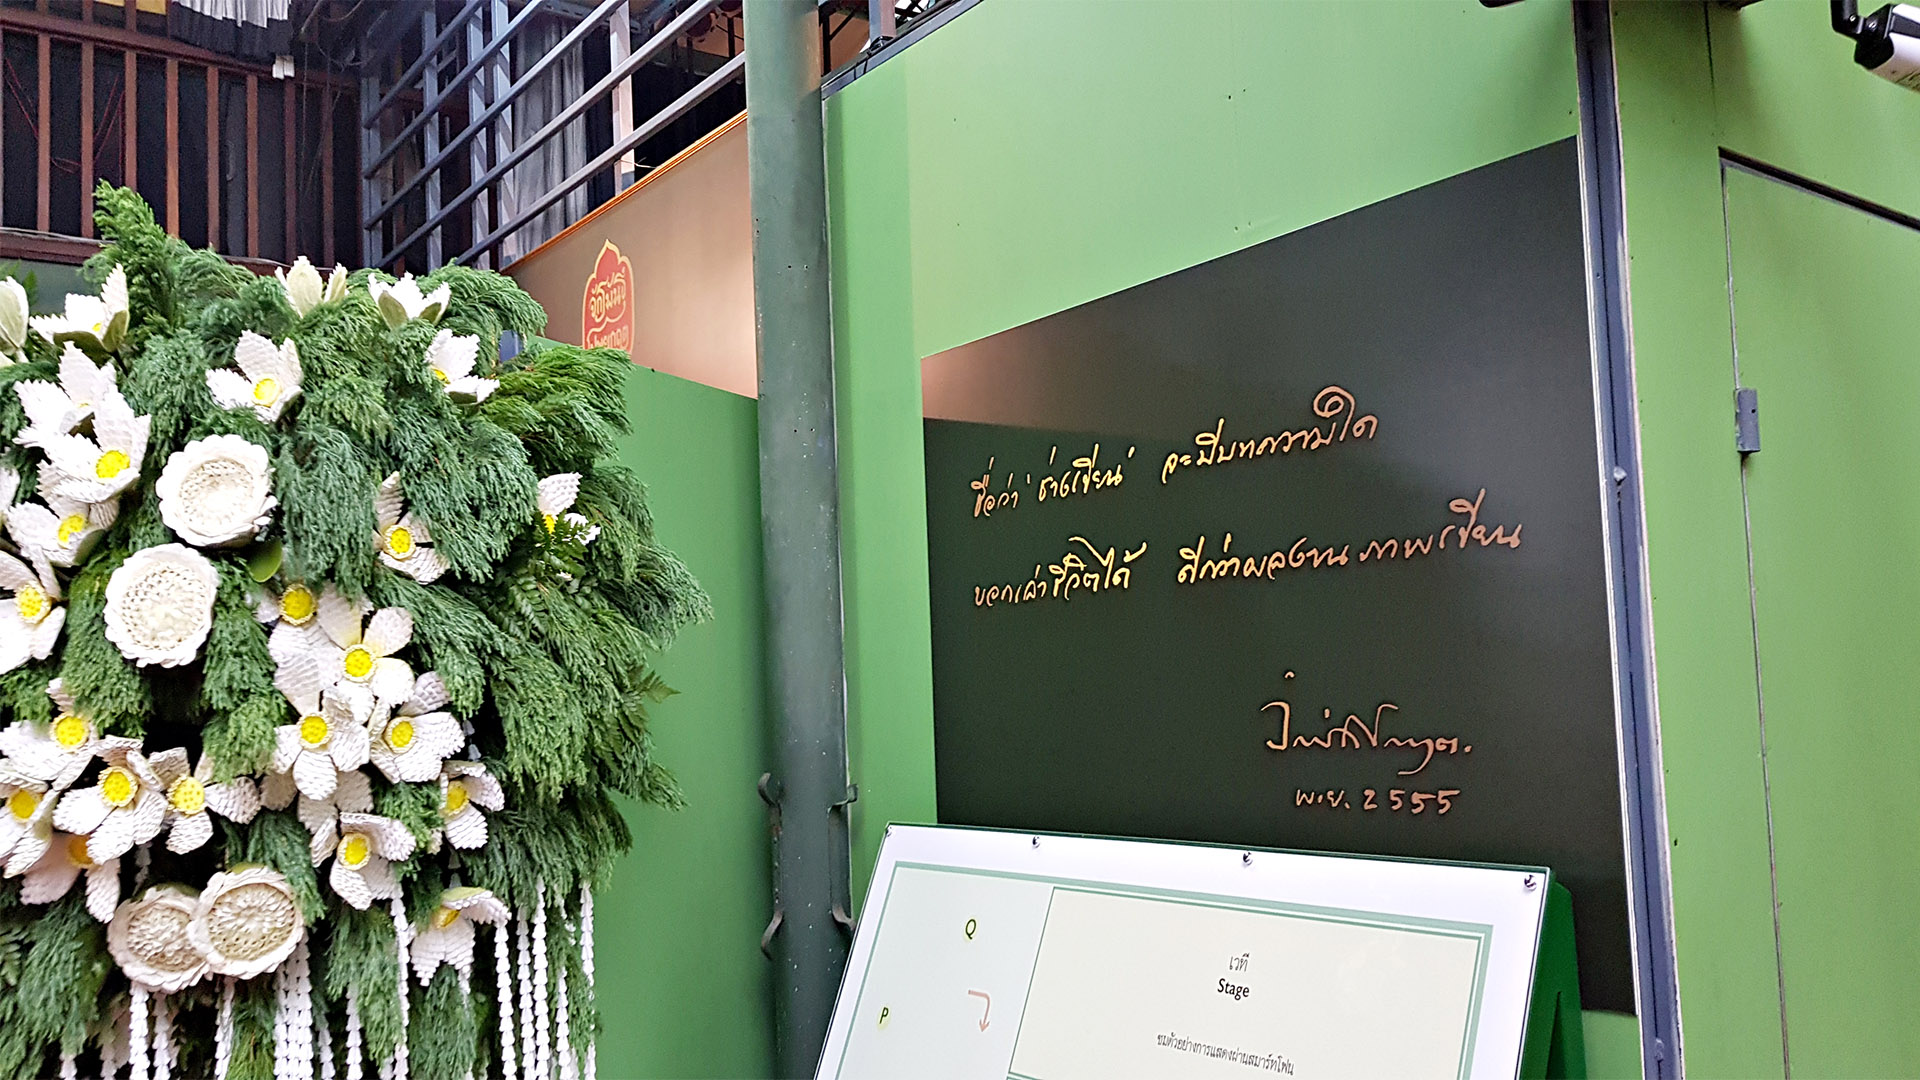 จักรพันธุ์
ชื่อว่า 'ช่างเขียน' จะมีบทความใด
บอกเล่าชีวิตได้ ดีกว่าผลงานภาพเขียน
พ.ย. 2555
Q
P
เวที
Stage
ชมตัวอย่างการแสดงผ่านสมาร์ทโฟน